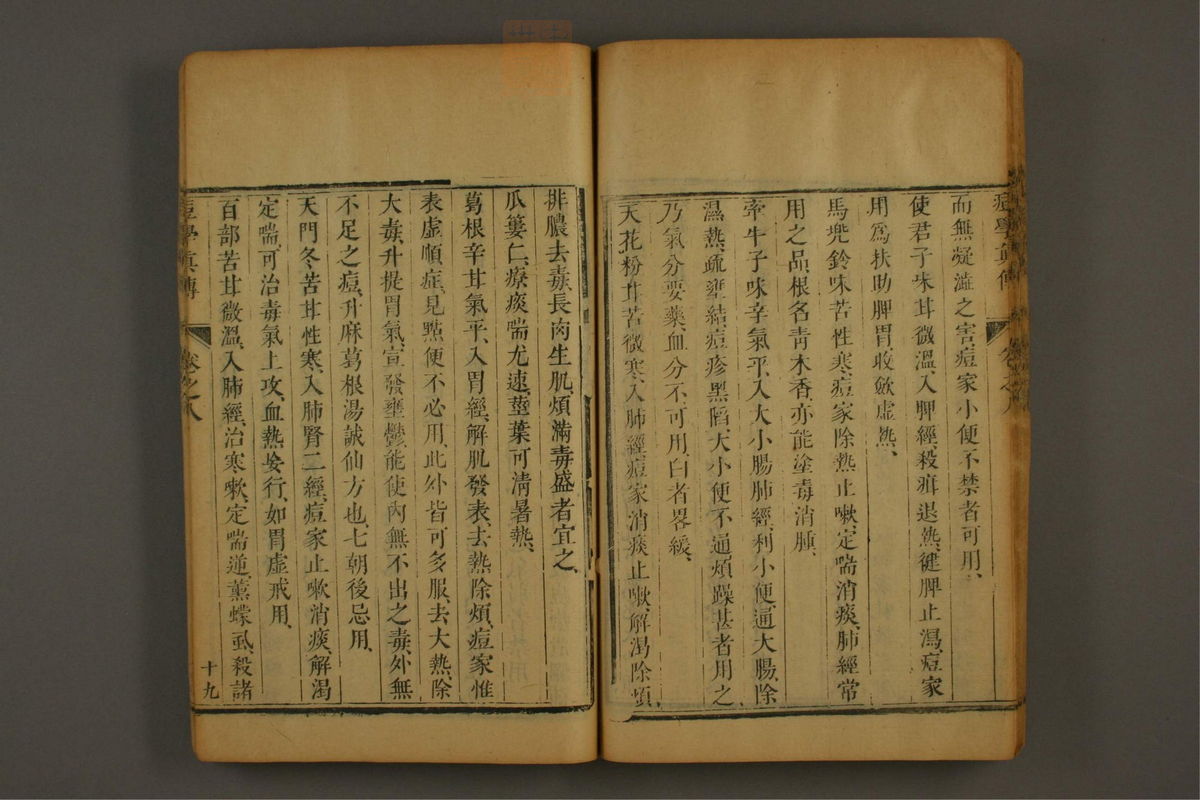 痘學眞傳 卷之八
而無凝澁之害痘家小便不禁者可用、
使君子味甘微溫、入脾經殺疳退熱、健脾止瀉、痘家
用爲扶助脾胃收斂虛熱、
馬兜鈴味苦性寒、痘家除熱止嗽、定喘消痰、肺經常
用之品、根名青木香、亦能塗毒消腫、
牽牛子味辛氣平、入大小腸肺經、利小便、通大腸、除
濕熱、疏壅結、痘疹黑陷、大小便不通煩躁甚者用之
乃氣分要藥、血分不可用、白者畧緩、
天花粉甘苦微寒、入肺經、痘家消痰止嗽、解渴除煩
排膿去毒、長肉生肌煩滿毒盛者宜之、
瓜蔞仁、療痰喘尤速、莖葉可淸暑熱、
葛根辛甘氣平、入胃經、解肌發表、去熱除煩、痘家惟
表虛順症、見點便不必用、此外皆可多服、去大熱、除
大毒、升提胃氣、宣發壅鬱、能使內無不出之毒、外無
不足之痘、升麻葛根湯誠仙方也、七朝後忌用、
天門冬苦甘性寒、入肺腎二經、痘家止嗽消痰、解渴
定喘、可治毒氣上攻、血熱妄行、如胃虛戒用、
百部苦甘微溫、入肺經、治寒嗽、定喘逆、薰蠓虱、殺諸
痘學眞傳 卷之八
十九